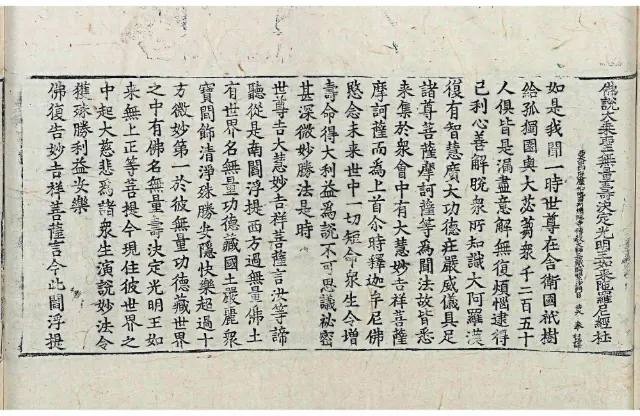 佛說大乘聖無量壽決定光明王如來陀羅尼經杜
奉 詔譯
如是我聞一時世尊在舍衛國祇樹
給孤獨園與大苾芻衆千二百五十
人俱皆是漏盡意解無復煩惱逮得
已利心善解脫衆所知識大阿羅漢
復有智慧廣大功德莊嚴威儀具足
諸尊菩薩摩訶薩等為聞法故皆悉
來集於衆會中有大慧妙吉祥菩薩
摩訶薩而為上首尒時釋迦牟尼佛
愍念未來世中一切短命衆生令增
壽命得大利益為說不可思議祕密
甚深微妙勝法是時
世尊告大慧妙吉祥菩薩言汝等諦
聽從是南閻浮提西方過無量佛土
有世界名無量功德藏國土嚴麗衆
寶閒飾清淨殊勝安隱快樂超過十
方微妙第一於彼無量功德藏世界
之中有佛名無量壽決定光明王如
來無上正等菩提今現住彼世界之
中起大慈悲為諸衆生演說妙法令
獲殊勝利益安樂
佛復告妙吉祥菩薩言今此閻浮提